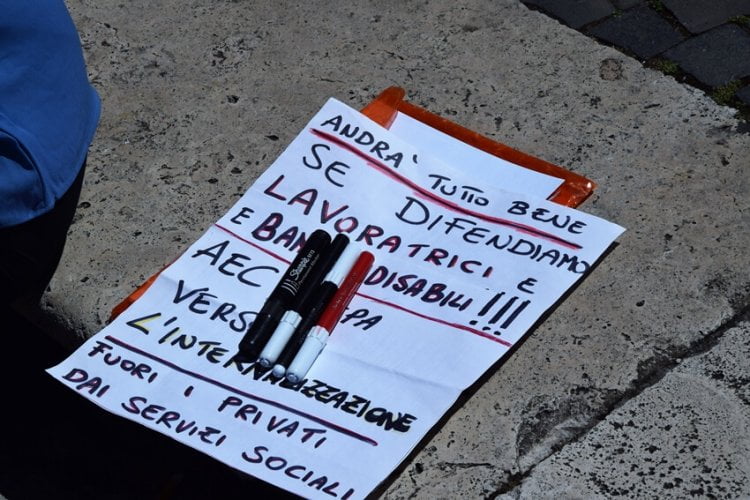 ANDRA' TUTTO BENE
SE DIFENDIAMO
LAVORATRICI E
E DISABILI!!!
AEC
L'INTERNALIZZAZIONE
FUORI I PRIVATI
DAI SERVIZI SOCIALI
Sharpie